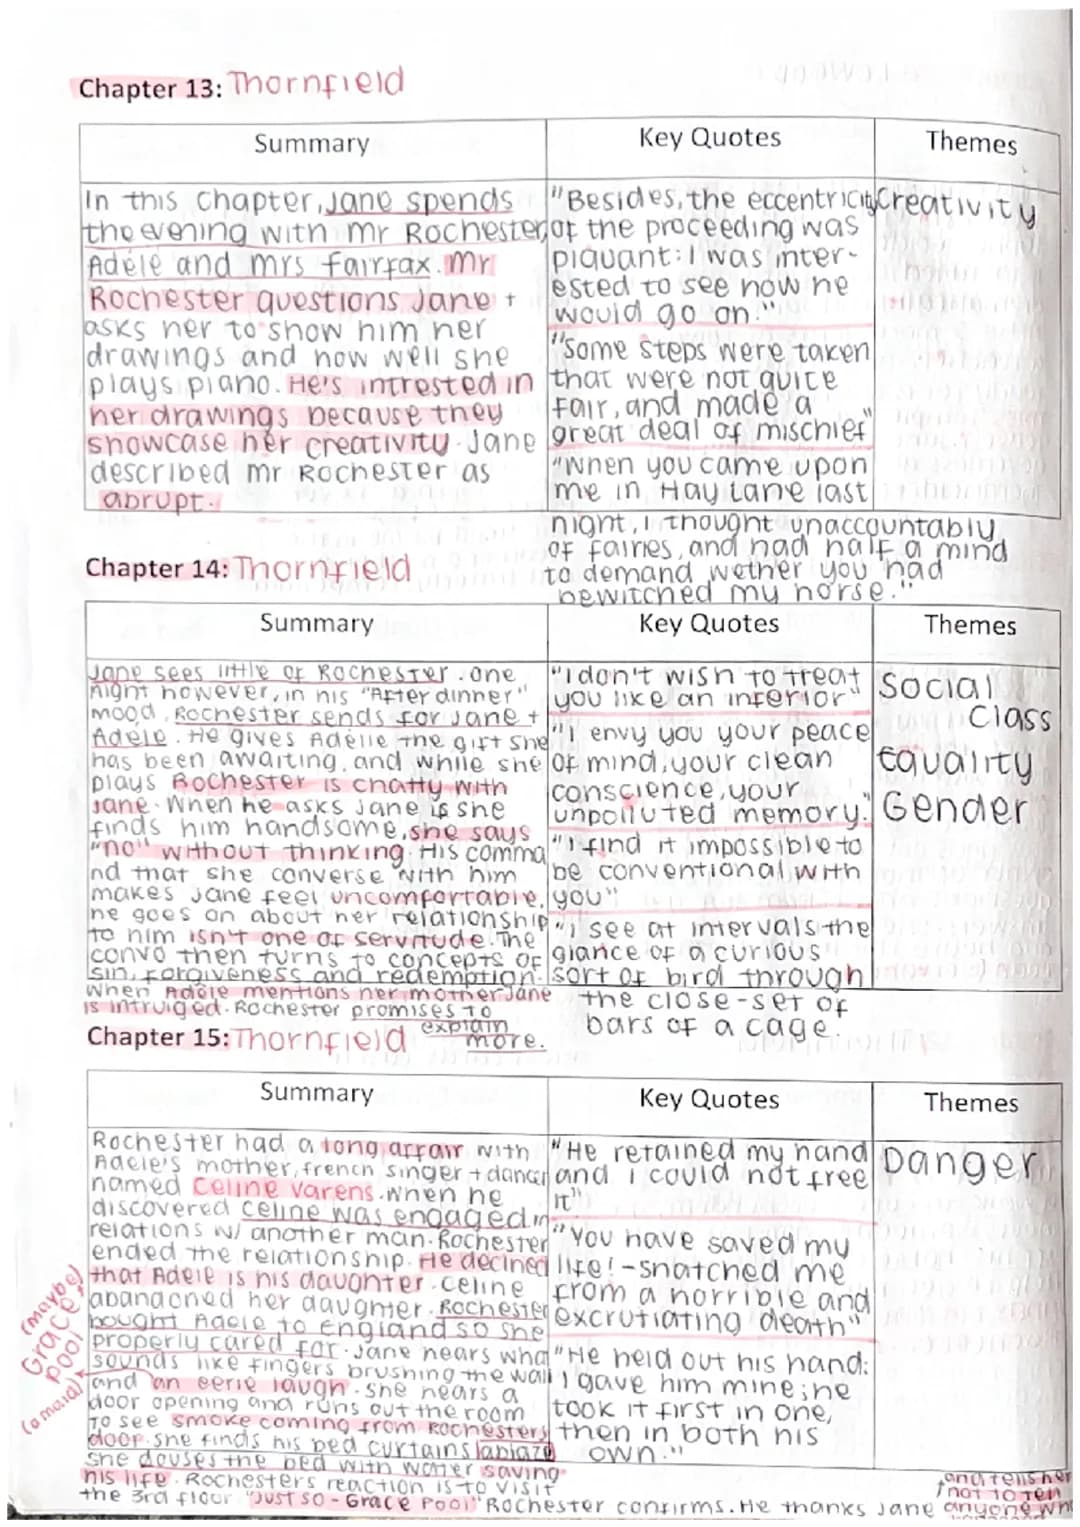 Chapter 13: Thornfield
Summary
Key Quotes
Themes
In this chapter, Jane spends
the evening with mr Rochester,
Adéle and mrs fairfax. Mr
Rochester questions Jane +
asks her to show him her
drawings and how well she
plays piano. He's intrested in
her drawings because they
showcase her creativity. Jane
described mr Rochester as
abrupt.
"Besides, the eccentricity
of the proceeding was
piquant: I was inter-
ested to see how he
would go on."
"Some steps were taken
that were not quite
fair, and made a
great deal of mischief"
"When you came upon
me in Hay Lane last
night, I thought unaccountably
of fairies, and had half a mind
to demand wether you had
bewitched my horse."
Creativity
Chapter 14: Thornfield
Summary
Key Quotes
Themes
Jane sees little of Rochester. One
night however, in his "After dinner"
mood, Rochester sends for Jane +
Adele. He gives Adelle the gift she
has been awaiting, and while she
plays Rochester is chatty with
Jane. When he asks Jane is she
finds him handsome, she says
"no" without thinking. His comma
nd that she converse with him
makes Jane feel uncomfortable.
he goes on about her relationship
to him isn't one of servitude. The
convo then turns to concepts of
sin, forgiveness and redemption.
When Adele mentions her mother Jane
is intruiged. Rochester promises to
explain
more.
"I don't wish to treat
you like an inferior"
"I envy you your peace
of mind, your clean
conscience, your
unpolluted memory."
"I find it impossible to
be conventional with
you"
"I see at intervals the
glance of a curious
sort of bird through
the close-set of
bars of a cage.
Social
Class
Equality
Gender
Chapter 15: Thornfield
Summary
Key Quotes
Themes
Rochester had a long affair with
Adele's mother, french singer + dancer
named Celine Varens. When he
discovered Celine was engaged in
relations w/ another man. Rochester
ended the relationship. He declined
that Adele is his daughter. Celine
abandoned her daughter. Rochester
bought Adele to England so she
properly cared for. Jane hears wha
sounds like fingers brushing the wall
and an eerie laugh. She hears a
door opening and runs out the room
to see smoke coming from Rochesters
door. She finds his bed curtains ablaze
She douses the bed with water saving
his life. Rochesters reaction is to visit
the 3rd floor. "Just so - Grace Pool" Rochester confirms. He thanks Jane
and tells her
not to tell
anyone wh
(maybe)
Grace
Pool
(a maid)
"He retained my hand
and I could not free
it"
"You have saved my
life! - snatched me
from a horrible and
excrutiating death"
"He held out his hand:
I gave him mine; he
took it first in one,
then in both his
own."
Danger